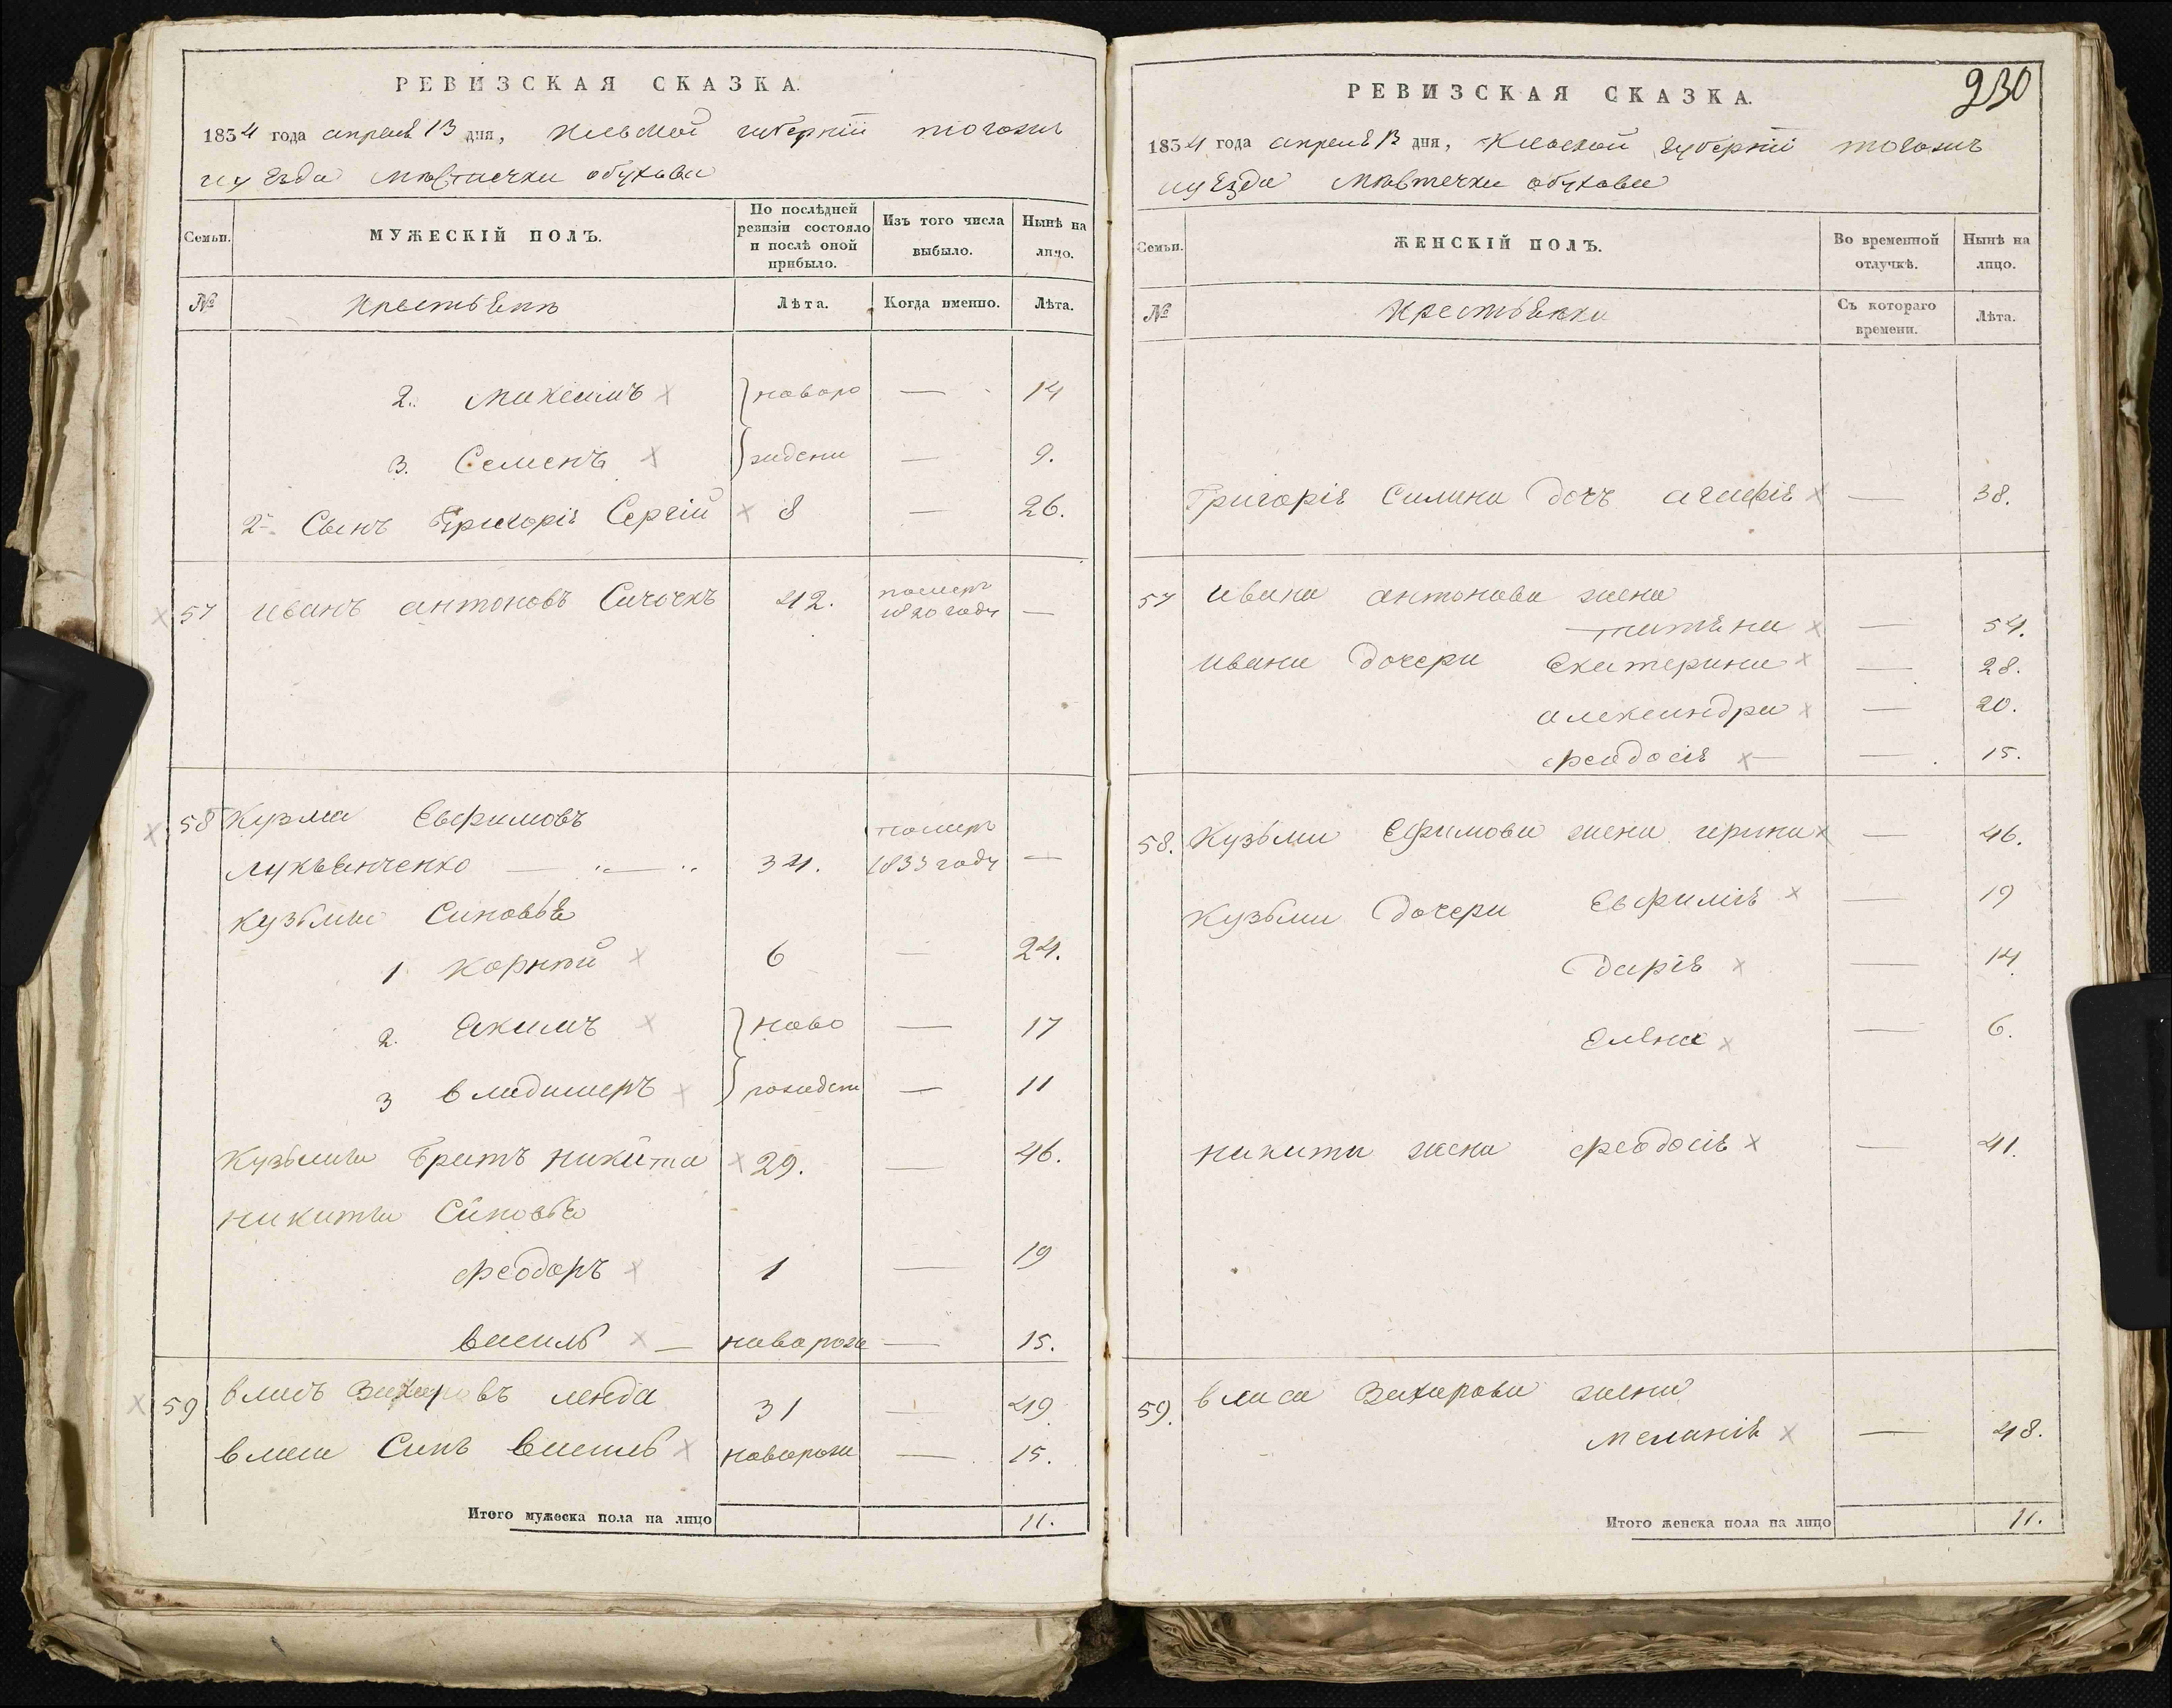 РЕВИЗСКАЯ СКАЗКА.
1834 года апреля 13 дня, Киевской губернiи тогожъ
уезда Мѣстечка обухова
Семьи. МУЖЕСКIЙ ПОЛЪ. По послѣдней ревизiи состояло и послѣ оной прибыло. Изъ того числа выбыло. Нынѣ на лицо.
№ Крестьѣнѣ Лѣта. Когда именно. Лѣта.
2. Максимъ х новоро — 14
3. Семенъ х ждени — 9.
2- Сынъ Григорiѣ Сергiй х 8 — 26.
х 57 иванъ антоновъ Сичочкъ 42. померъ 1820 году —
х 58 Кузма Евфимовъ
лукьѣнченко — 34. померъ 1833 году —
кузьмы Синовьѣ
1 Корнiй х 6 — 24.
2. Екимъ х ново — 17
3 владимеръ х рожден — 11
Кузьмы братъ никита х 29. — 46.
никиты Синовьѣ
феодоръ х 1 — 19
василь х — новорож — 15.
х 59 власъ Захаровъ ленда 31 — 49
власа Синъ василь х новорож — 15.
Итого мужеска пола на лицо 11.
230
РЕВИЗСКАЯ СКАЗКА.
1834 года апреля 13 дня, Киевской губернiи тогожъ
уезда Мѣстечка обухова
Семьи. ЖЕНСКIЙ ПОЛЪ. Во временной отлучкѣ. Нынѣ на лицо.
№ Крестьѣнки Съ котораго времени. Лѣта.
Григорiѣ Силина дочъ агафiѣ х — 38.
57 ивана антонова жена
татѣна х — 54.
ивана дочери Екатерина х — 28.
александра х — 20.
феодосiѣ х — 15.
58. Кузьми Ефимова жена ирина х — 46.
Кузьми дочери Евфимiѣ х — 19
дарiѣ х — 14
Елѣна х — 6.
никити жена феодосiѣ х — 41.
59. власа Захарова жена
меланiѣ х — 48.
Итого женска пола на лицо 11.